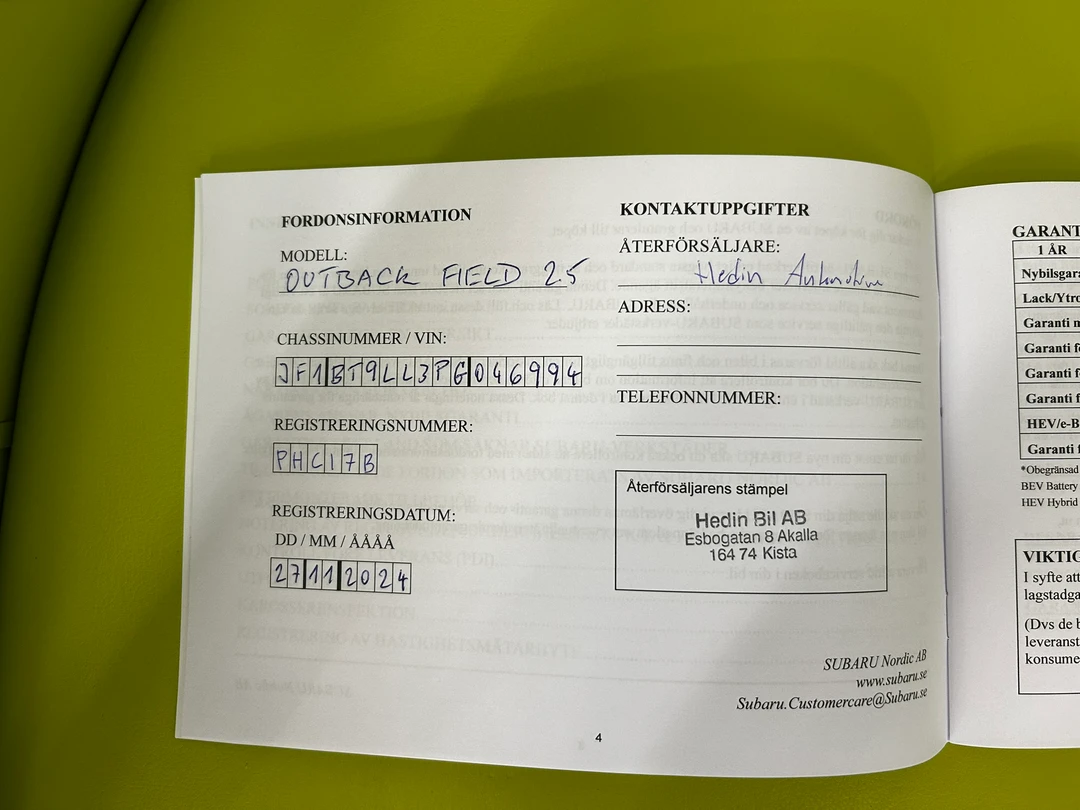 FORDONSINFORMATION
MODELL:
OUTBACK FIELD 2.5
CHASSINUMMER / VIN:
JF1BT9LL3PG046994
REGISTRERINGSNUMMER:
PHC17B
REGISTRERINGSDATUM:
DD / MM / ÅÅÅÅ
27112024
KONTAKTUPPGIFTER
ÅTERFÖRSÄLJARE:
Hedin Automotive
ADRESS:
TELEFONNUMMER:
Återförsäljarens stämpel
Hedin Bil AB
Esbogatan 8 Akalla
164 74 Kista
SUBARU Nordic AB
www.subaru.se
Subaru.Customercare@Subaru.se
4
GARANT
1 ÅR
Nybilsgara
Lack/Ytro
Garanti n
Garanti fö
Garanti f
Garanti f
HEV/e-B
Garanti f
*Obegränsad
BEV Battery
HEV Hybrid
VIKTIG
I syfte att
lagstadga
(Dvs de b
leveranst
konsume